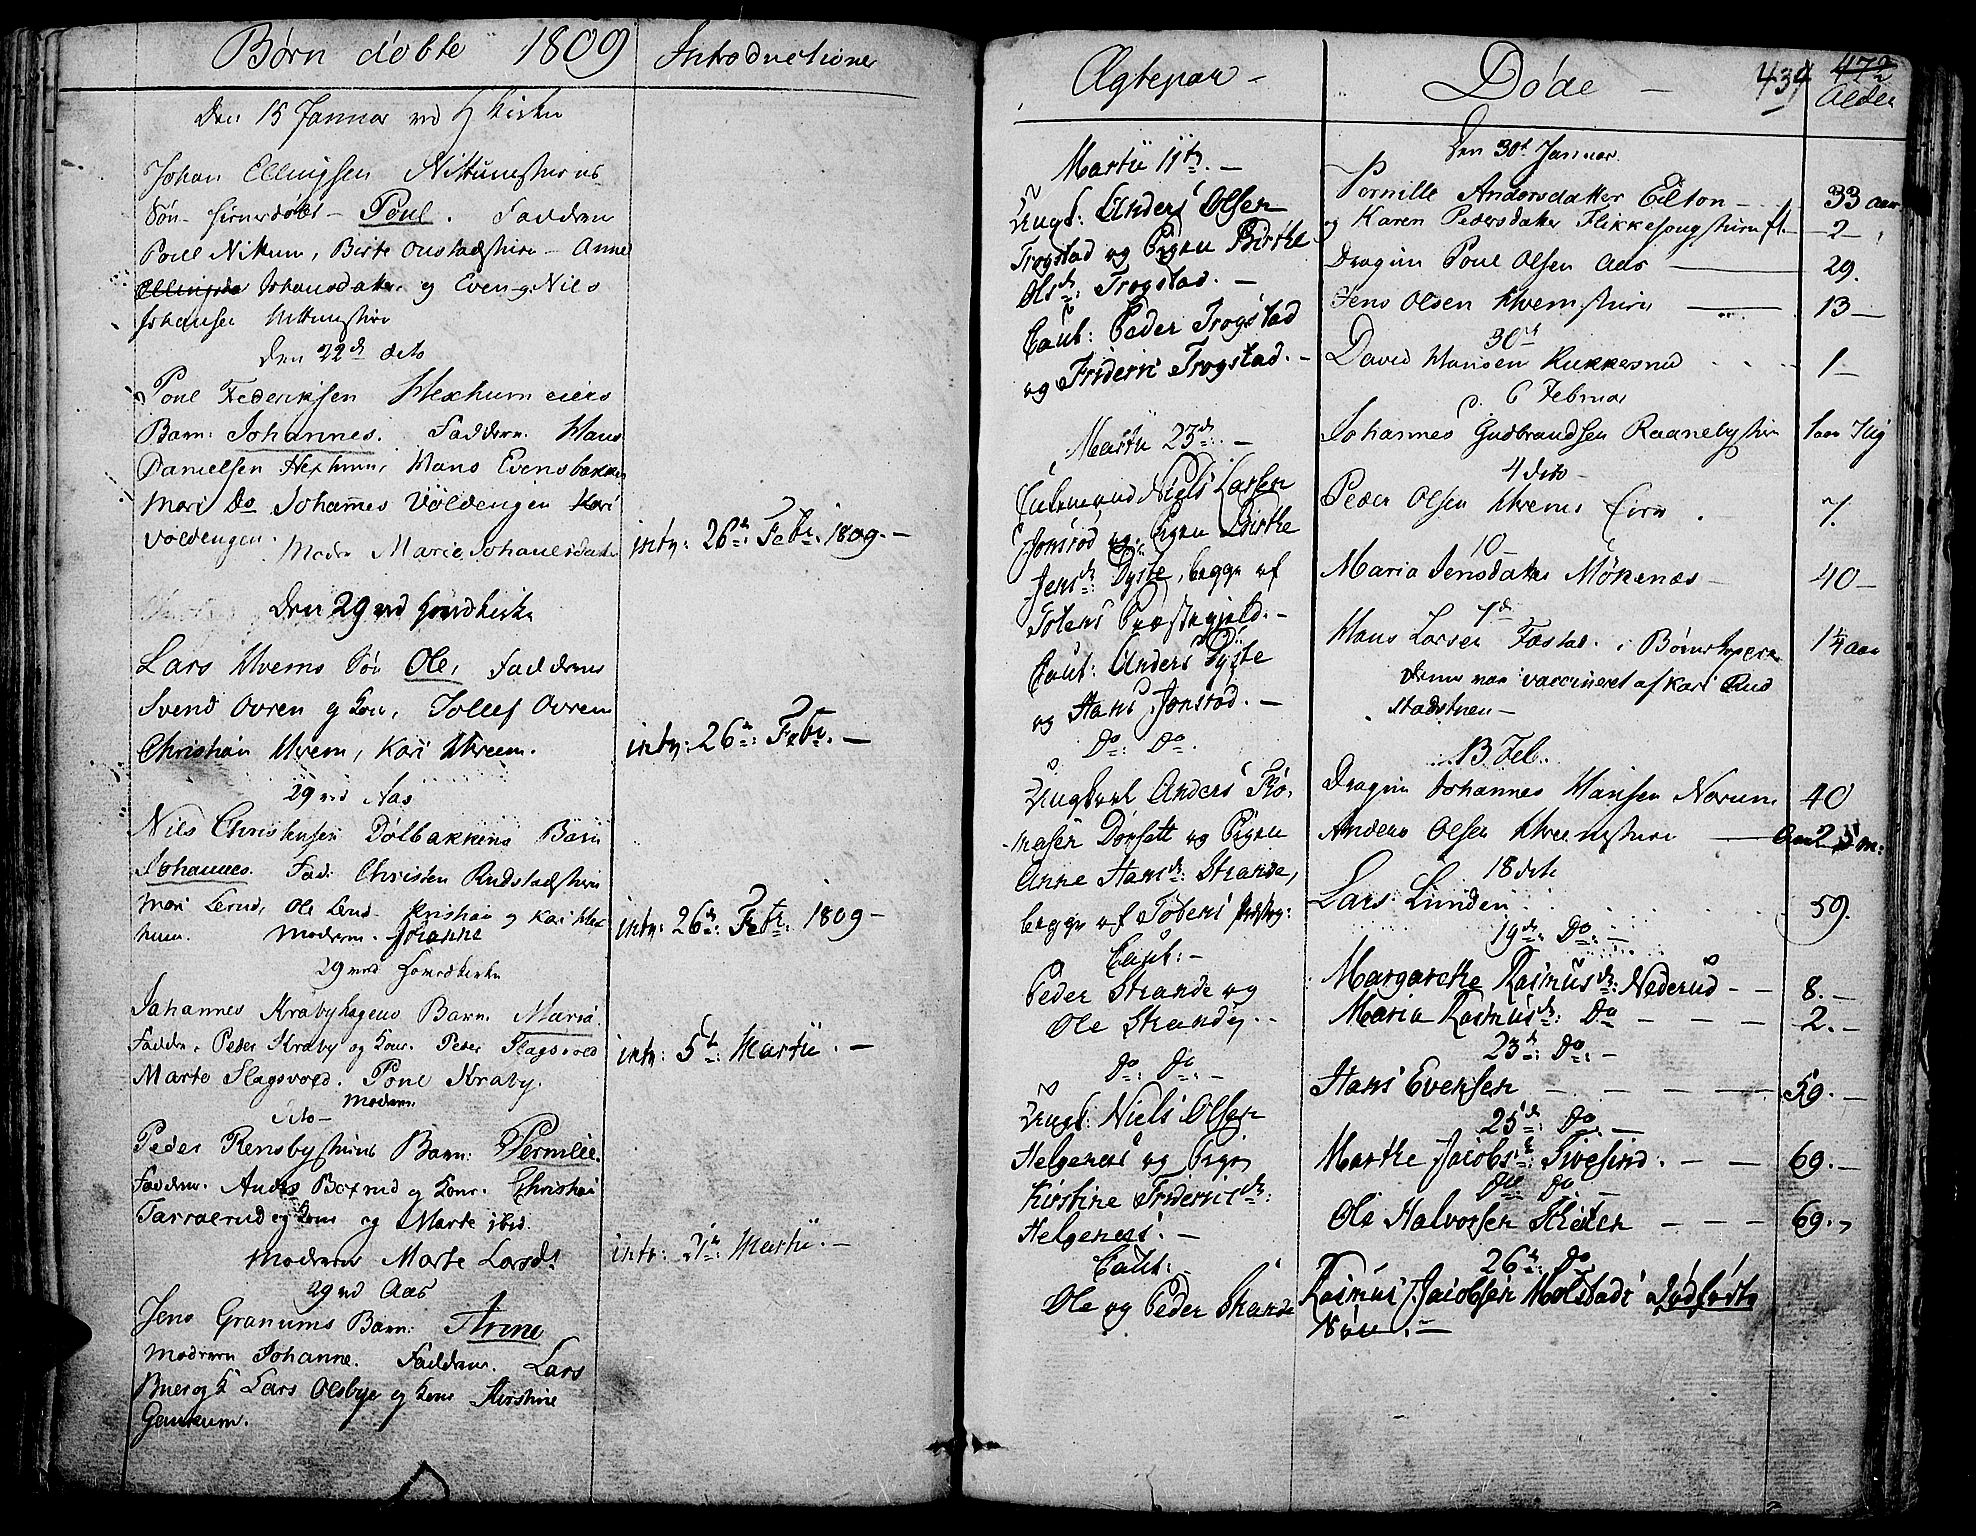 Børn døbte 1809
Den 15 Januar ved H Kirke
Johan Ellingsen Nittumsteries
Søn hiemedøbt - Poul. Fadderne
Poul Nittum, Birte Onstadsterie - Anne
Ellingsda Johansdatter og Even og Nils
Johansen Nittumsterie
Den 22de dito
Poul Federiksen Hexhum eies
Barn: Johannes. Faddere. Hans
Danielsen Hexhum, Hans Evensbakken
Mari Do Johannes Völdengen Kari
Voldengen. Modr Marie Johanesdatter
Den 29 ved Hovedkirke
Lars Hvems Søn Ole, Fadderne
Svend Ovren og Kone, Tollef Ovren
Christian Hvem, Kari Hveem.
29 ved Aas
Nils Christensen Dølbakkens Barn
Johannes. Fad: Christen Rudstadsterie
Mari Lerud, Ole Lerud - Kristian og Kari Hex
hum. Moderen - Johanne
29 ved Hovedkirke
Johannes Krabyhagens Barn Maria.
Faddre, Peder Kraby og Kone. Peder Slagsvold
Marte Slagsvold. Poul Kraby.
Moderen
Dito -
Peder Rensbysteries Barn: Pernilie.
Faddere. Anders Boxrud og Kone. Christian
og Kone og Marte ibid.
Moderen Marte Larsdr
29 ved Aas
Jens Granums Barn: Anne
Moderen Johanne. Fadderne. Lars
Buer og K Lars Olsbye og Kone Kirstine
Gaukum.
Introductioner
intr: 26de Febr. 1809. -
intr: 26de Febr. -
intr: 26de Febr. 1809 -
intr: 5te Martii. -
intr: 21de Martii. -
Ægtepar -
Martii 11te. -
Ungk: Anders Olsen
Trogstad og Pigen Birthe
Olsdr: Trogstad. -
Caut: Peder Trogstad
og Frideric Trogstad. -
Martii 23de. -
Enkemand Niels Larsen
Jonsrød og Pigen Birthe
Jensdr Dyste, begge af
Totens Præstegjeld. -
Caut: Anders Dyste
og Hans Jonsrød. -
Do: Do.
Ungkarl Anders Tho-
masen Dorsett og Pigen
Anne Hansdr: Strande,
begge af Totens Præsteg:
Caut: -
Peder Strande og
Ole Strande. -
Do: Do: -
Ungk: Niels Olsen
Helgenes og Pigen
Kirstine Fridericsdr:
Helgenes. -
Caut: -
Ole og Peder Strande
Døde - 439 472
Alder
Den 30te Januar.
Pernille Andersdatter Eilton - 33 aar
og Karen Pedersdatter Flikkesongsterie - 2 -
Dragun Poul Olsen Aas - 29.
Jens Olsen Hvemsterie - 13 -
30te
David Hansen Kukkesrud - 1 -
d. 6 Februar
Johannes Gudbrandsen Raanebysterie 1 aar 7 Ug
4 dito -
Peder Olsen Hvems Eie . 7.
10 -
Maria Jensdatter Mökenæs - 40 -
7de
Hans Larsen Fastad. i Børnekopper 1¼ aar
denne var vaccineret af Kari Rud
stadstuen -
13 Feb.
Dragun Johannes Hansen Norum 40
Anders Olsen Hveemsterie - Aar 2 5 m:
18 dito
Lars Lunden 59.
19de Do: -
Margarethe Rasmusdr: Nederud - - 8. -
Maria Rasmusdr: Do - - - 2. -
23de Do: -
Hans Evensen - - - - 59. -
25de Do. -
Marthe Jacobsdr: Sivesind. - - 69. -
Do Do -
Ole Halvorsen - - - 69. -
26de Do
Rasmus Jacobsen Molstads Dødfødte
Søn. -